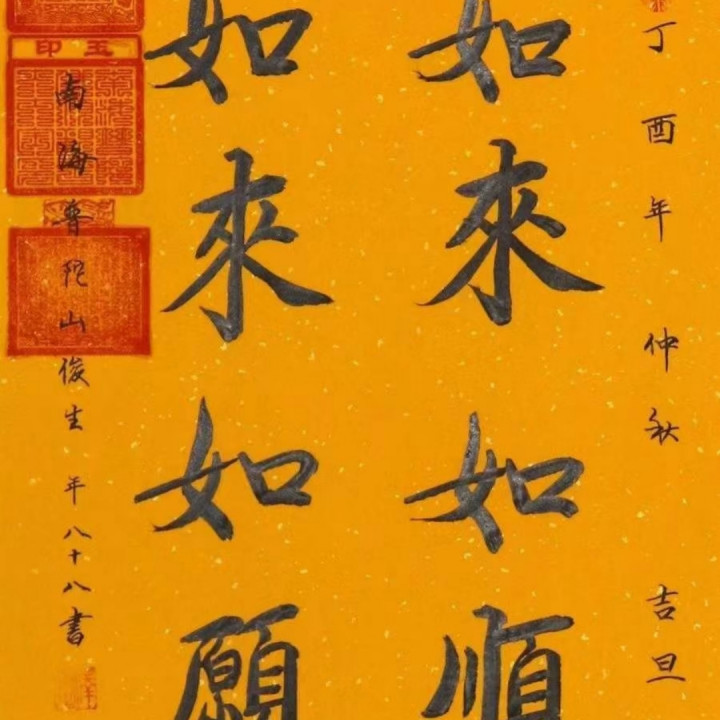 丁酉年仲秋吉旦
如來如順
如來如願
南海普陀山俊生年八十八書
玉印